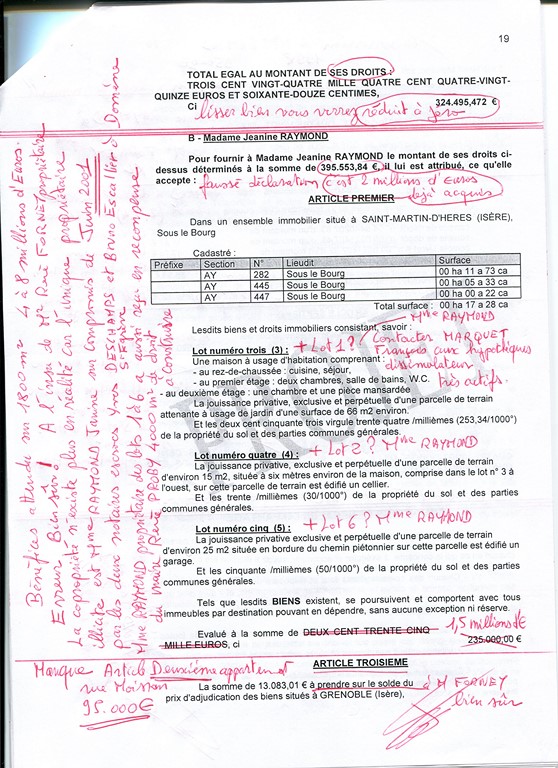 19
TOTAL EGAL AU MONTANT DE SES DROITS :
TROIS CENT VINGT-QUATRE MILLE QUATRE CENT QUATRE-VINGT-
QUINZE EUROS ET SOIXANTE-DOUZE CENTIMES,
Ci 324.495,472 €
lisser bien vous verrez réduit à zero
B - Madame Jeanine RAYMOND
Pour fournir à Madame Jeanine RAYMOND le montant de ses droits ci-
dessus déterminés à la somme de 395.553,84 €, il lui est attribué, ce qu'elle
accepte : fausse déclaration c'est 2 millions d'Euros
déjà acquis
ARTICLE PREMIER
Dans un ensemble immobilier situé à SAINT-MARTIN-D'HERES (ISÈRE),
Sous le Bourg
Cadastré :
Préfixe Section N° Lieudit Surface
AY 282 Sous le Bourg 00 ha 11 a 73 ca
AY 445 Sous le Bourg 00 ha 05 a 33 ca
AY 447 Sous le Bourg 00 ha 00 a 22 ca
Total surface : 00 ha 17 a 28 ca
Lesdits biens et droits immobiliers consistant, savoir :
Mme RAYMOND
Lot numéro trois (3) : + Lot 1 ? Contacter MARQUET
Une maison à usage d'habitation comprenant : François aux hypothèques
- au rez-de-chaussée : cuisine, séjour, dissimulateur
- au premier étage : deux chambres, salle de bains, W.C. très actifs.
- au deuxième étage : une chambre et une pièce mansardée
La jouissance privative, exclusive et perpétuelle d'une parcelle de terrain
attenante à usage de jardin d'une surface de 66 m2 environ.
Et les deux cent cinquante trois virgule trente quatre /millièmes (253,34/1000°)
de la propriété du sol et des parties communes générales.
Lot numéro quatre (4) : + Lot 2 ? Mme RAYMOND
La jouissance privative, exclusive et perpétuelle d'une parcelle de terrain
d'environ 15 m2, située à six mètres environ de la maison, comprise dans le lot n° 3 à
l'ouest, sur cette parcelle de terrain est édifié un cellier.
Et les trente /millièmes (30/1000°) de la propriété du sol et des parties
communes générales.
Lot numéro cinq (5) : + Lot 6 ? Mme RAYMOND
La jouissance privative exclusive et perpétuelle d'une parcelle de terrain
d'environ 25 m2 située en bordure du chemin piétonnier sur cette parcelle est édifié un
garage.
Et les cinquante /millièmes (50/1000°) de la propriété du sol et des parties
communes générales.
Tels que lesdits BIENS existent, se poursuivent et comportent avec tous
immeubles par destination pouvant en dépendre, sans aucune exception ni réserve.
1,5 millions d'€
Evalué à la somme de DEUX CENT TRENTE CINQ
MILLE EUROS, ci 235.000,00 €
Manque Article Deuxième appartement
rue Moissan
95.000€
ARTICLE TROISIEME
La somme de 13.083,01 € à prendre sur le solde du à M FORNEY
prix d'adjudication des biens situés à GRENOBLE (Isère), bien sûr
Bénéfices attendu sur 1800 m2 4 à 8 millions d'Euros.
Erreur Bien sur! A l'insu de Mr René FORNEY propriétaire
La copropriété n'existe plus en réalité car l'unique propriétaire
illicite est Mme RAYMOND Janine sur compromis de Juin 2001
par les deux notaires escrocs Yves DESCHAMPS et Bruno Escallier à Domène
St Egrève
Mme RAYMOND propriétaire des lots 1 à 6 a aussi reçu en recompense
du maire René PROBY 4000 m2 de droit
à construire